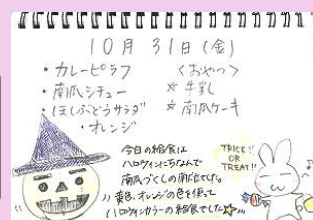 10月31日(金)
・カレーピラフ
・南瓜シチュー
・ほしぶどうサラダ
・オレンジ
<おやつ>
☆牛乳
☆南瓜ケーキ
今日の給食は
ハロウィンにちなんで
南瓜づくしの献立でした。
黄色、オレンジの色を使って
ハロウィンカラーの給食でした☆
TRICK!!
OR
TREAT!!